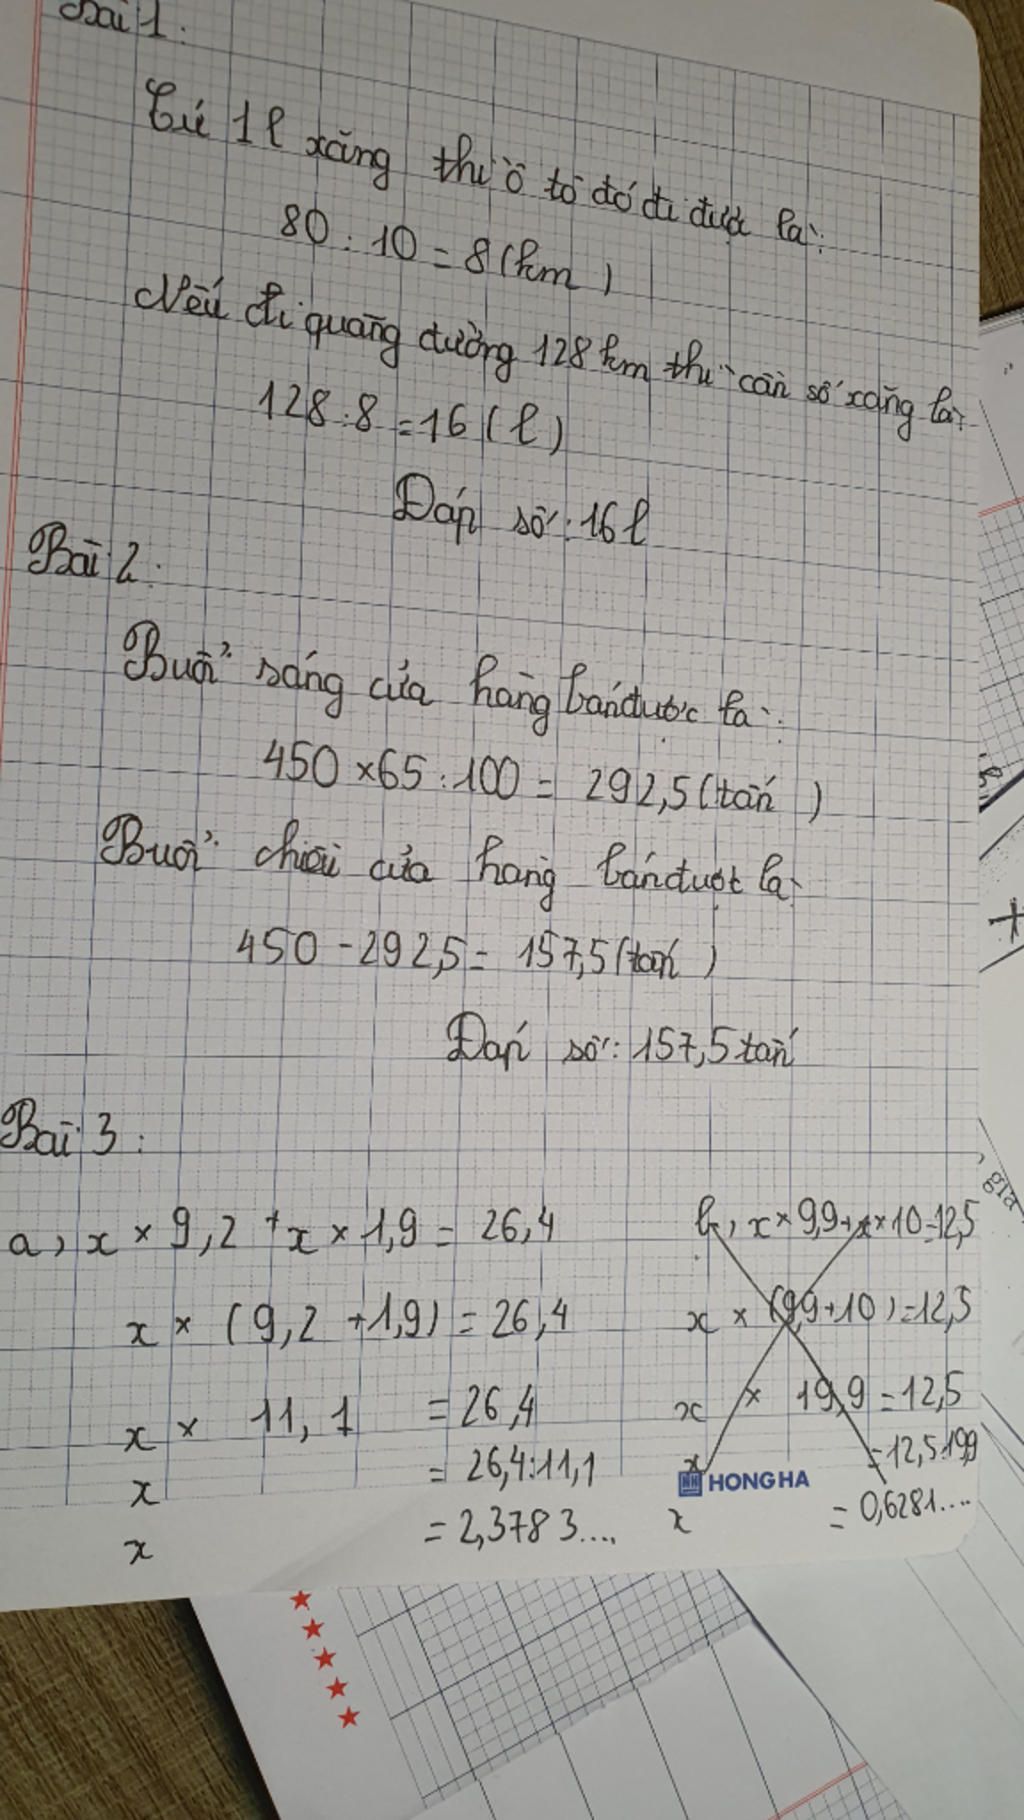 Bài 1:
Cứ 1 l xăng thì ô tô đó đi được là:
80 : 10 = 8 (km)
Nếu đi quãng đường 128 km thì cần số xăng là:
128 : 8 = 16 (l)
Đáp số: 16 l
Bài 2:
Buổi sáng cửa hàng bán được là:
450 × 65 : 100 = 292,5 (tấn)
Buổi chiều cửa hàng bán được là:
450 - 292,5 = 157,5 (tấn)
Đáp số: 157,5 tấn
Bài 3:
a, x × 9,2 + x × 1,9 = 26,4
x × (9,2 + 1,9) = 26,4
x × 11,1 = 26,4
x = 26,4 : 11,1
x = 2,3783....
b, x × 9,9 + x × 10 = 12,5
x × (9,9 + 10) = 12,5
x × 19,9 = 12,5
x = 12,5 : 19,9
x = 0,6281....
HONG HA
gia